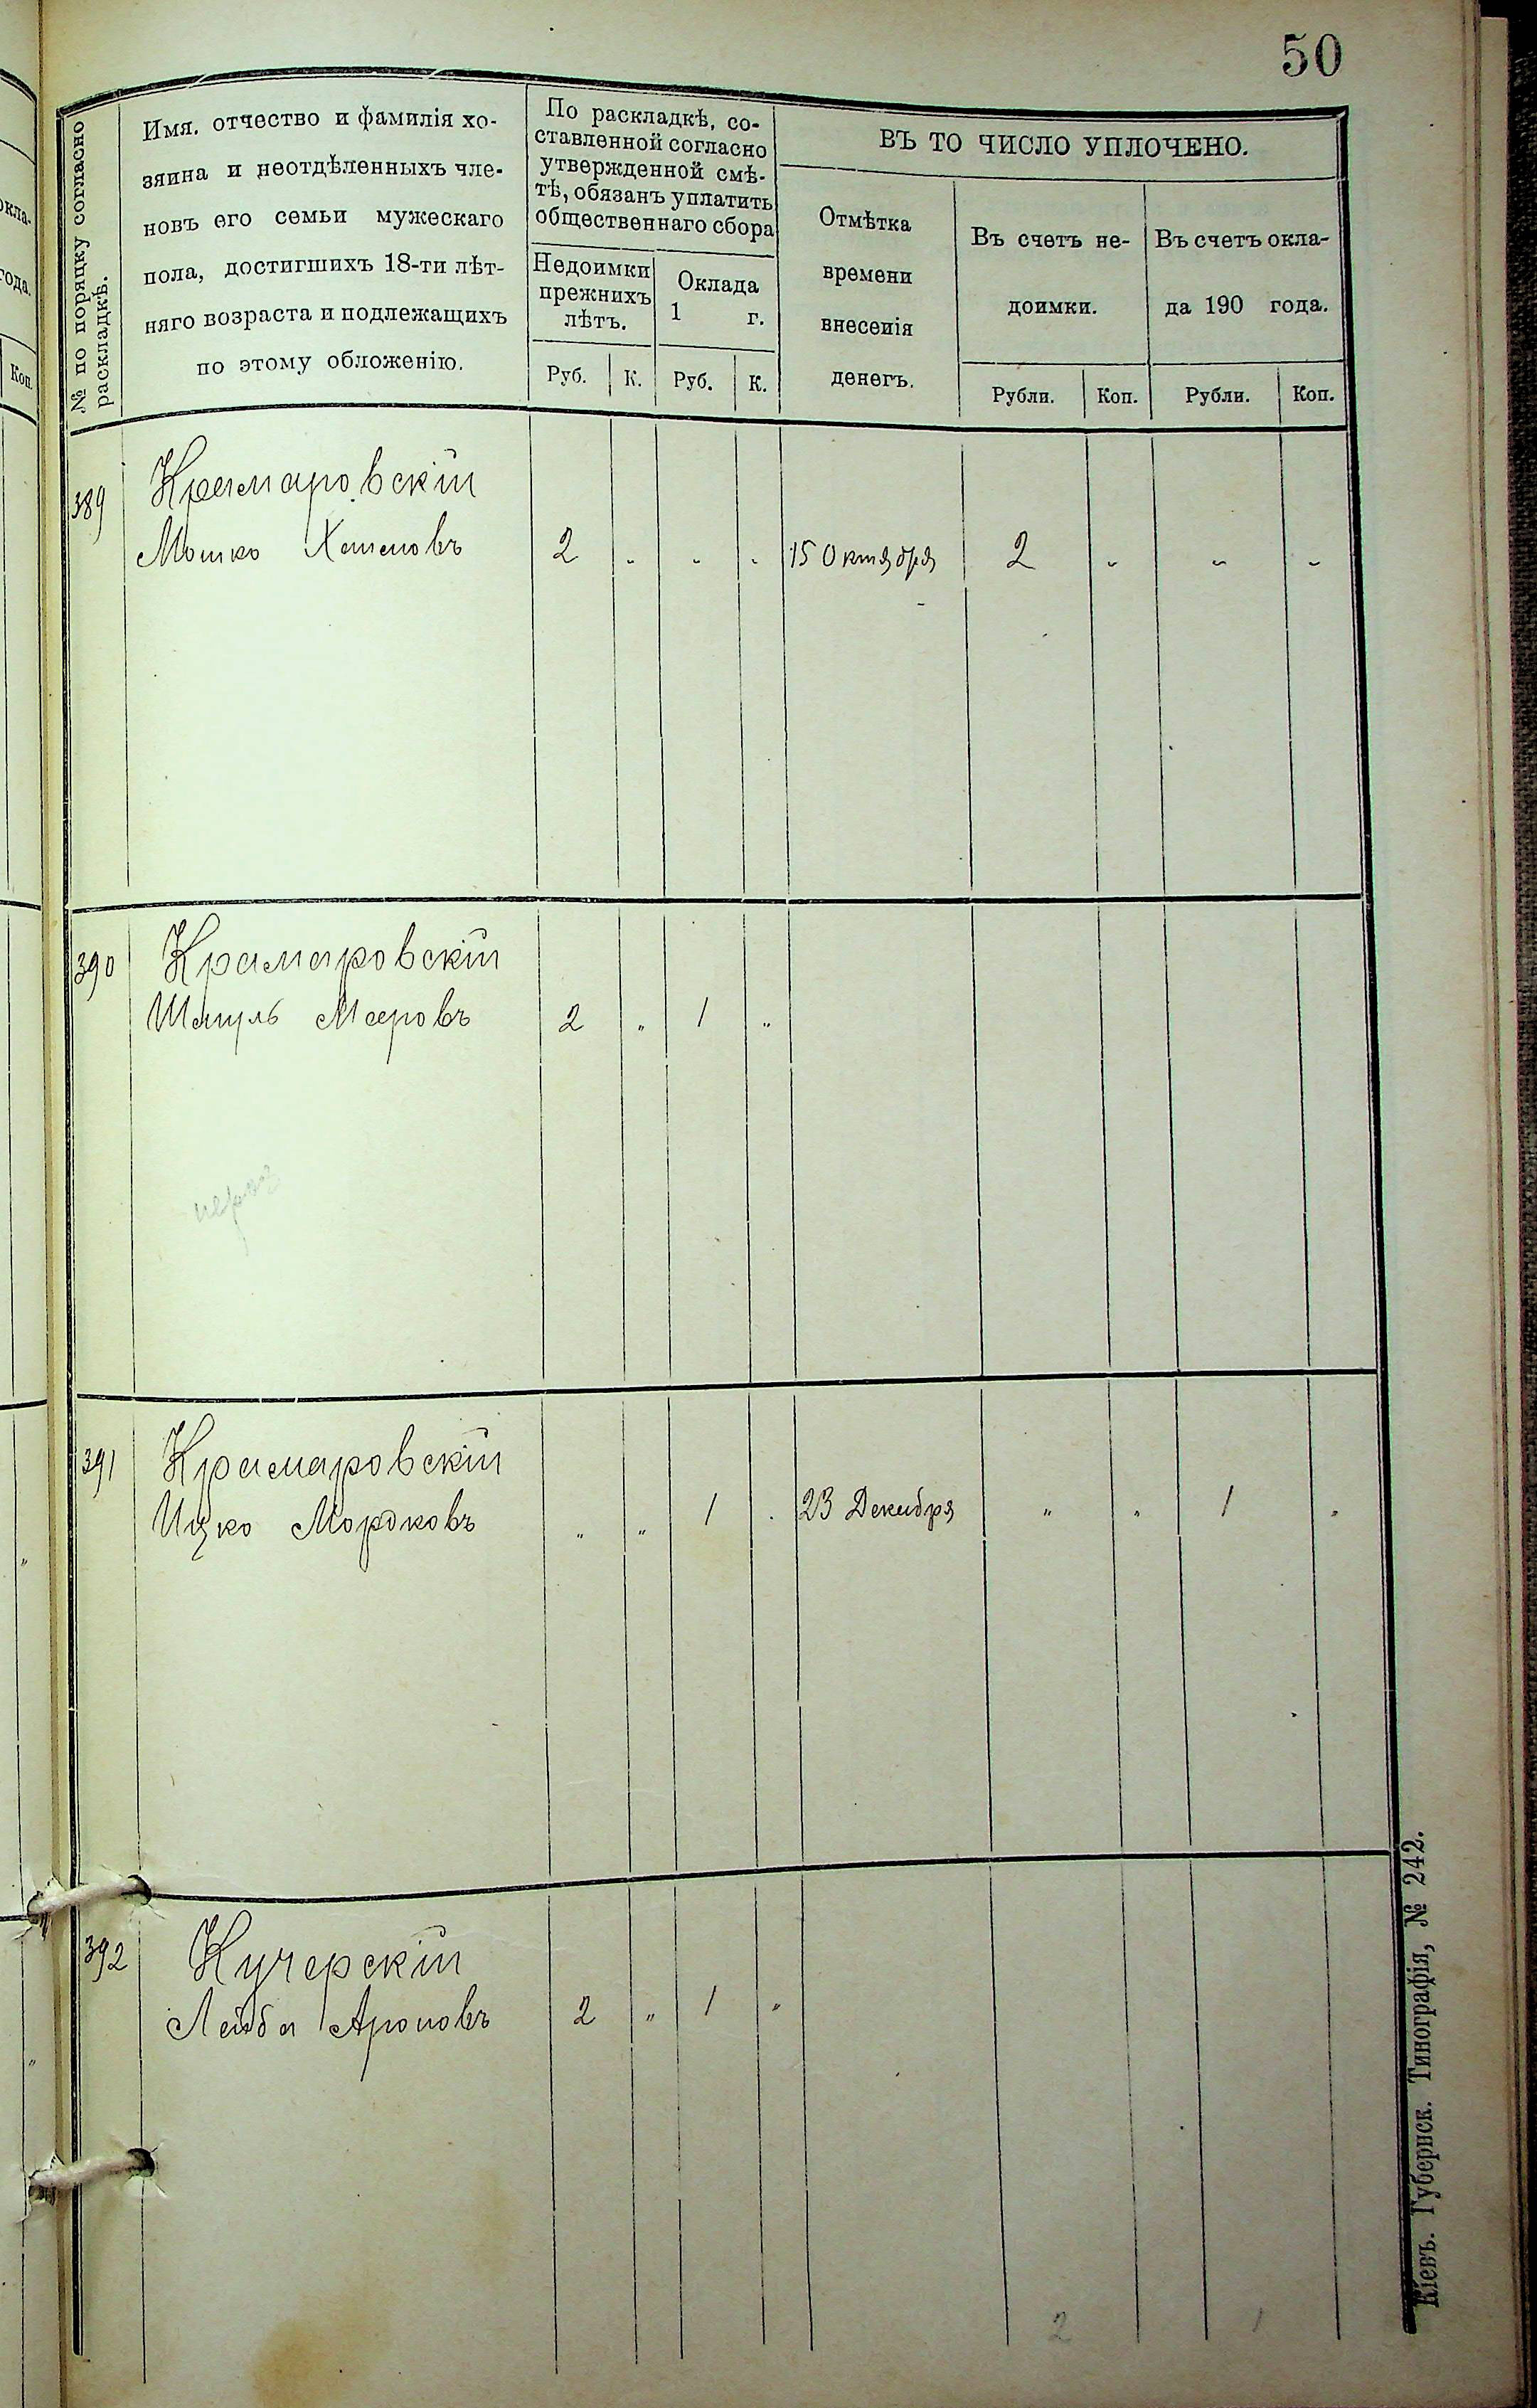 50
№ по порядку согласно
раскладкѣ.
Имя, отчество и фамилія хо-
зяина и неотдѣленныхъ чле-
новъ его семьи мужескаго
пола, достигшихъ 18-ти лѣт-
няго возраста и подлежащихъ
по этому обложенію.
По раскладкѣ, со-
ставленной согласно
утвержденной смѣ-
тѣ, обязанъ уплатить
общественнаго сбора
Недоимки
прежнихъ
лѣтъ.
Руб. К.
Оклада
1 г.
Руб. К.
ВЪ ТО ЧИСЛО УПЛОЧЕНО.
Отмѣтка
времени
внесенія
денегъ.
Въ счетъ не-
доимки.
Рубли. Коп.
Въ счетъ окла-
да 190 года.
Рубли. Коп.
389 Крамаровскій
Мошко 2 „ „ „ 15 Октября 2 „ „ „
390 Крамаровскій
Шмуль Мееровъ 2 „ 1 „
391 Крамаровскій
Ицко Мордковъ „ „ 1 „ 23 Декабря „ „ 1 „
392 Кучерскій
Лейба Ароновъ 2 „ 1 „
2 1
Кіевъ. Губернск. Типографія, № 242.
Коп.